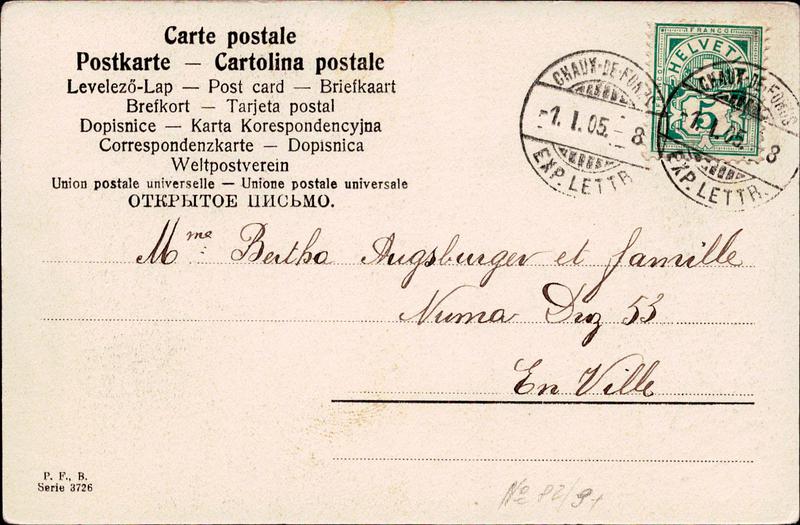 Carte postale
Postkarte — Cartolina postale
Levelező-Lap — Post card — Briefkaart
Brefkort — Tarjeta postal
Dopisnice — Karta Korespondencyjna
Correspondenzkarte — Dopisnica
Weltpostverein
Union postale universelle — Unione postale universale
ОТКРЫТОЕ ПИСЬМО.
FRANCO
HELVETIA
5
CHAUX-DE-FONDS
-1. I. 05.-8
EXP. LETTR.
CHAUX-DE-FONDS
-1. I. 05.-8
EXP. LETTR.
Mme Bertha Augsburger et famille
Numa Droz 53
En Ville
P. F., B.
Serie 3726
No 82/9